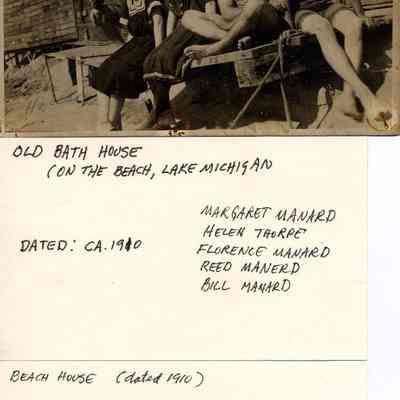 OLD BATH HOUSE
(ON THE BEACH, LAKE MICHIGAN
MARGARET MANARD
HELEN THORPE
DATED: CA. 1910
FLORENCE MANARD
REED MANERD
BILL MANARD
BEACH HOUSE (dated 1910)